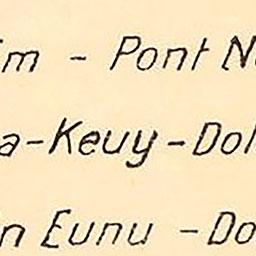 im - Pont N
a-Keuy-Dol
n Eunu - Do